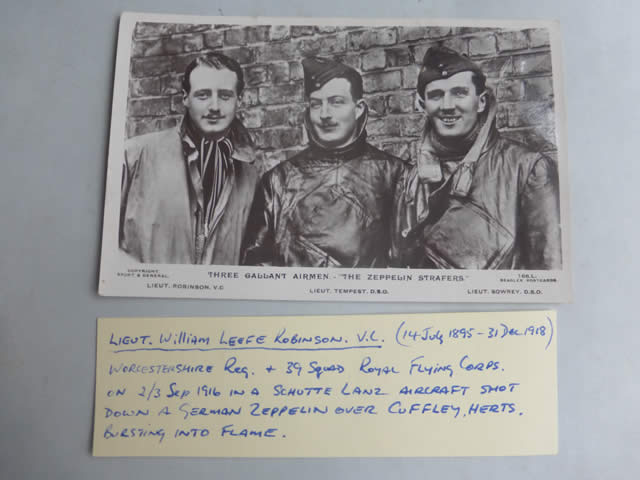 THREE GALLANT AIRMEN.- "THE ZEPPELIN STRAFERS."
COPYRIGHT.
SPORT & GENERAL.
BEAGLES' POSTCARDS.
LIEUT. ROBINSON, V.C.
LIEUT. TEMPEST, D.S.O.
LIEUT. SOWREY, D.S.O.
LIEUT. WILLIAM LEEFE ROBINSON. V.C. (14 JULY 1895 - 31 DEC 1918)
WORCESTERSHIRE REG. + 39 SQUAD ROYAL FLYING CORPS.
ON 2/3 SEP 1916 IN A SCHUTTE LANZ AIRCRAFT SHOT
DOWN A GERMAN ZEPPELIN OVER CUFFLEY, HERTS.
BURSTING INTO FLAME.